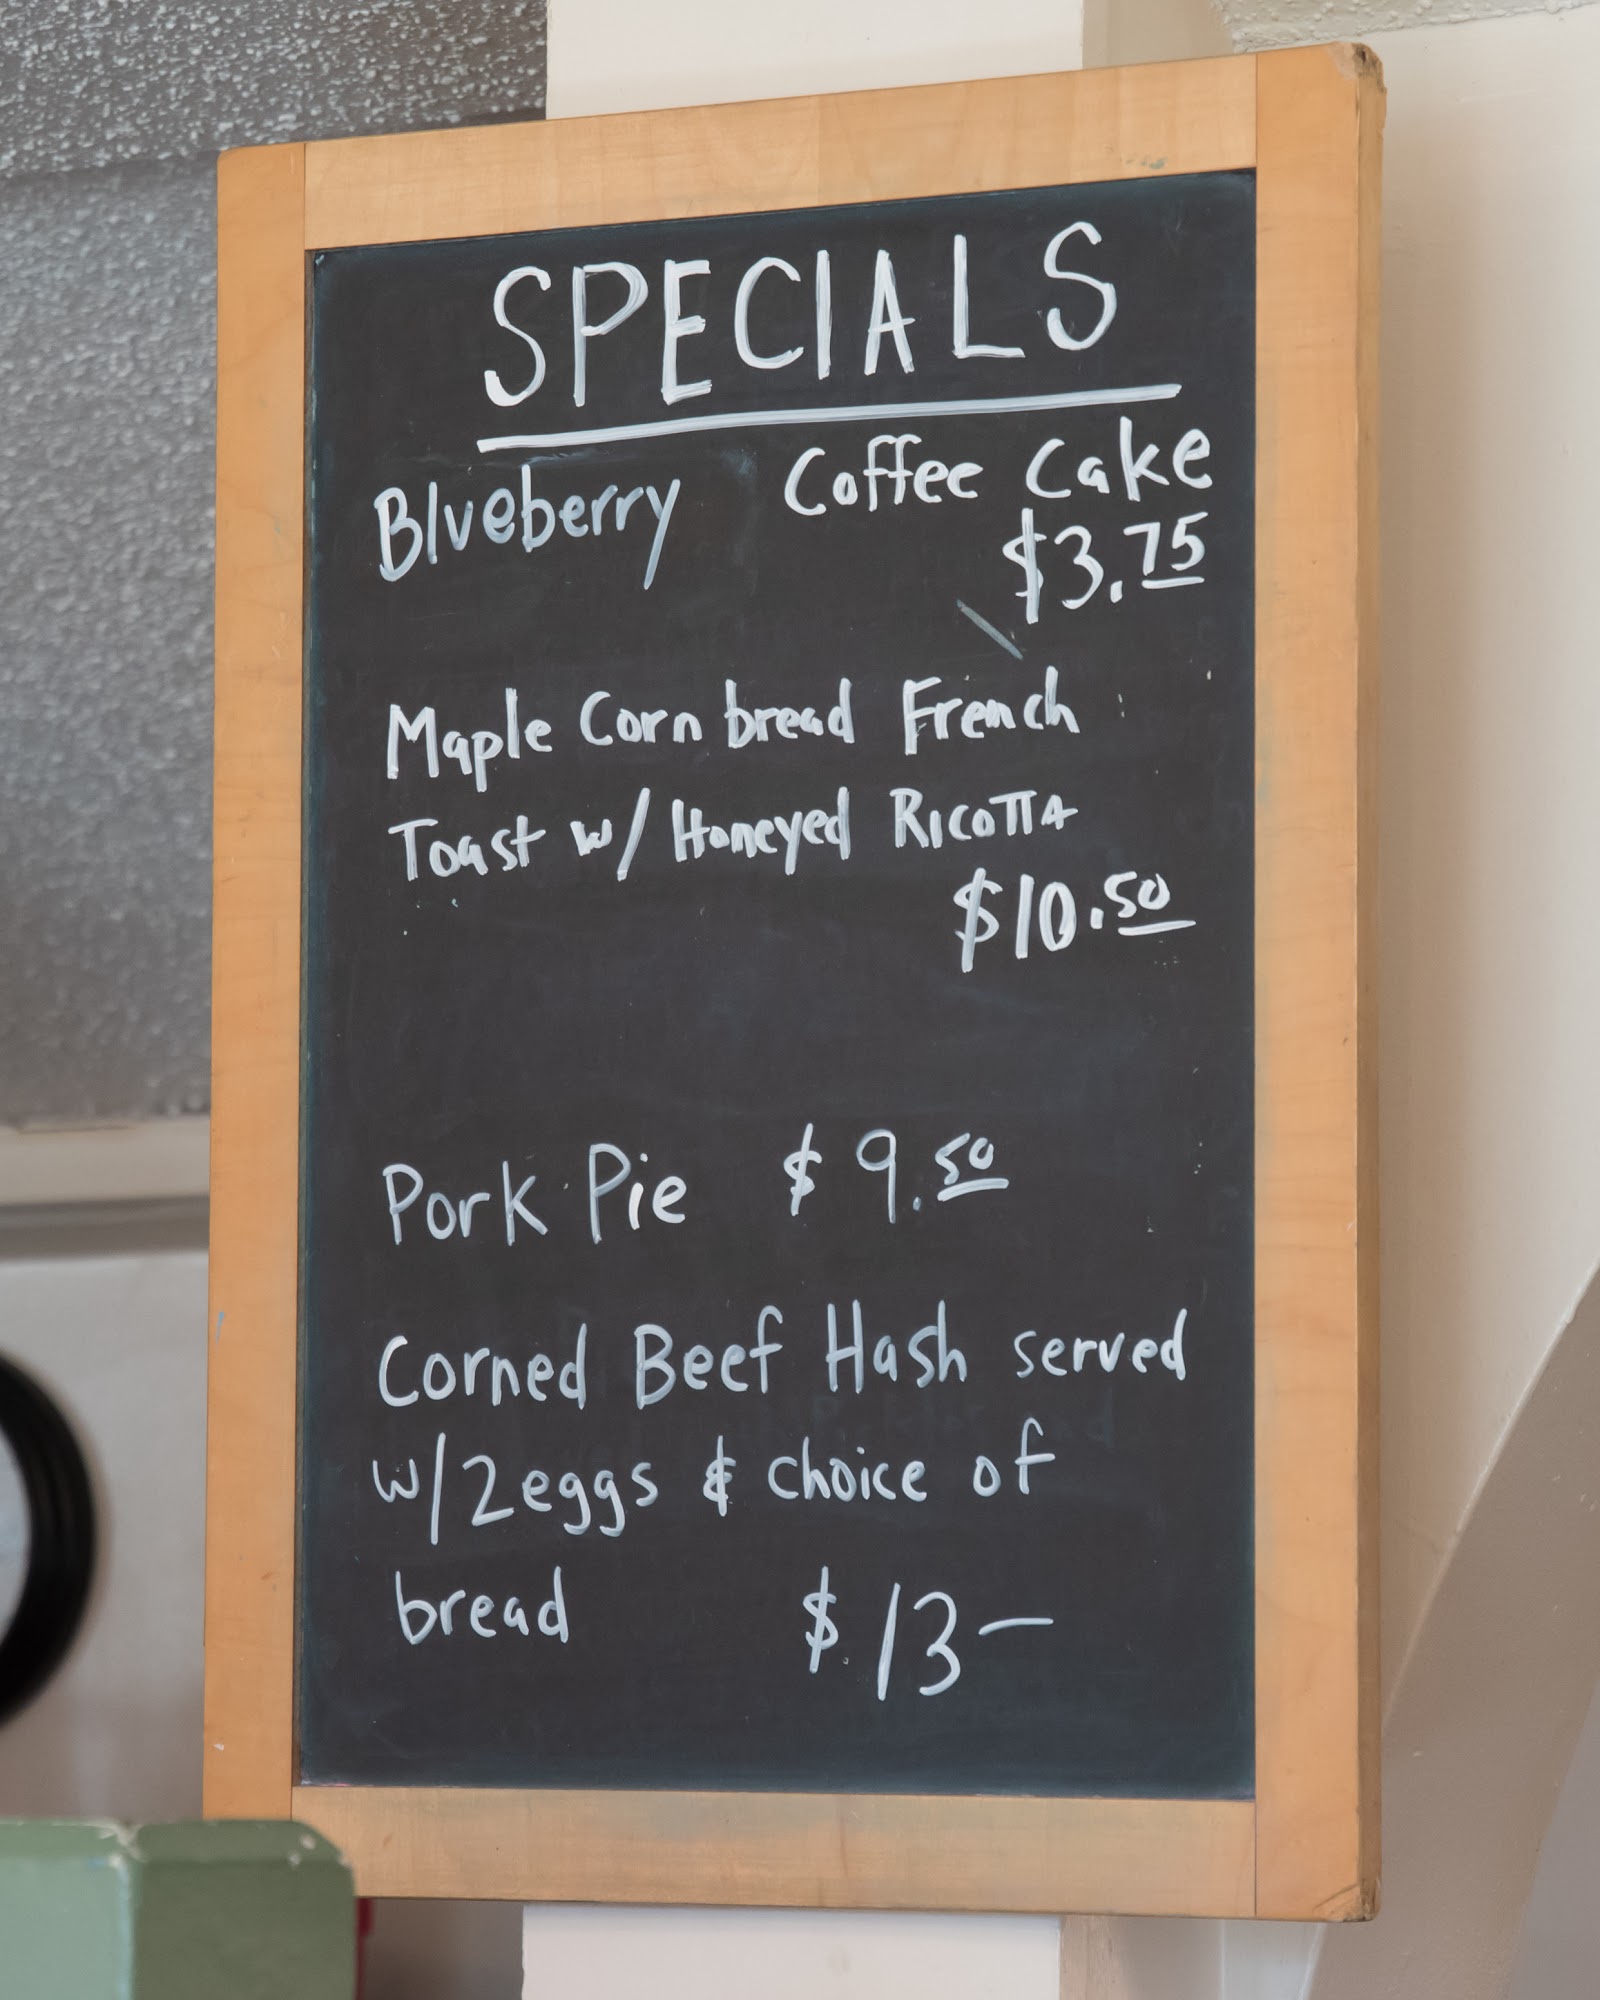 SPECIALS
Blueberry Coffee Cake
$3.75
Maple Corn bread French
Toast w/ Honeyed RICOTTA
$10.50
Pork Pie $9.50
Corned Beef Hash served
w/2eggs & choice of
bread $13—